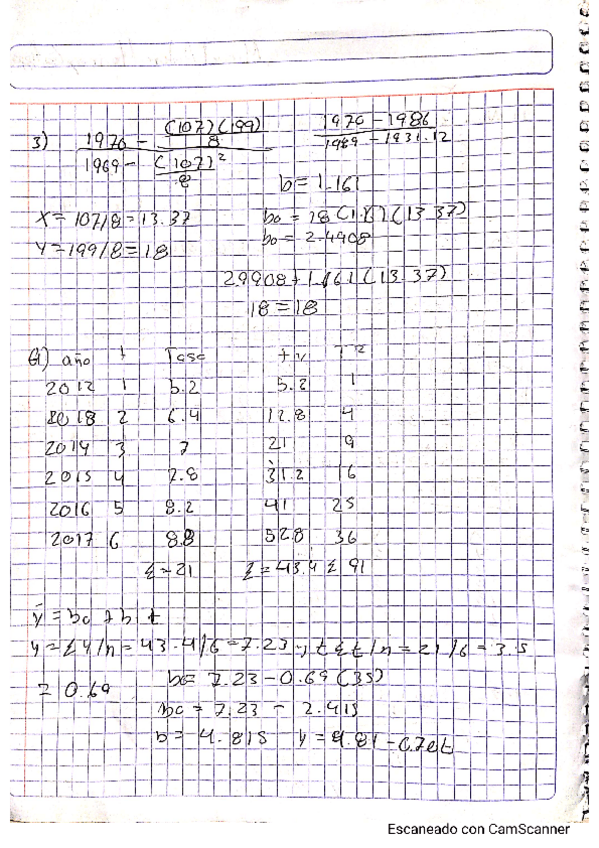 (107)(199)
3) 1970 - 8
1969 - (107)²
8
1970 - 1986
1989 - 1931.12
b = 1.161
X = 107/8 = 13.37
Y = 199/8 = 18
bo = 18 (1.161) (13.37)
bo = 2.4908
29908 + 1.161 (13.37)
18 = 18
año t Tasa t y T²
2012 1 5.2 5.2 1
2018 2 6.4 12.8 4
2014 3 7 21 9
2015 4 7.8 31.2 16
2016 5 8.2 41 25
2017 6 8.8 52.8 36
Σ = 21 Σ = 43.4 Σ 91
ȳ = bo + b t
y = Σy/n = 43.4/6 = 7.23 ; t Σt/n = 21/6 = 3.5
= 0.69
bo = 7.23 - 0.69 (35)
bo = 7.23 - 2.415
b = 4.815 y = 4.81 - 0.70t
Escaneado con CamScanner